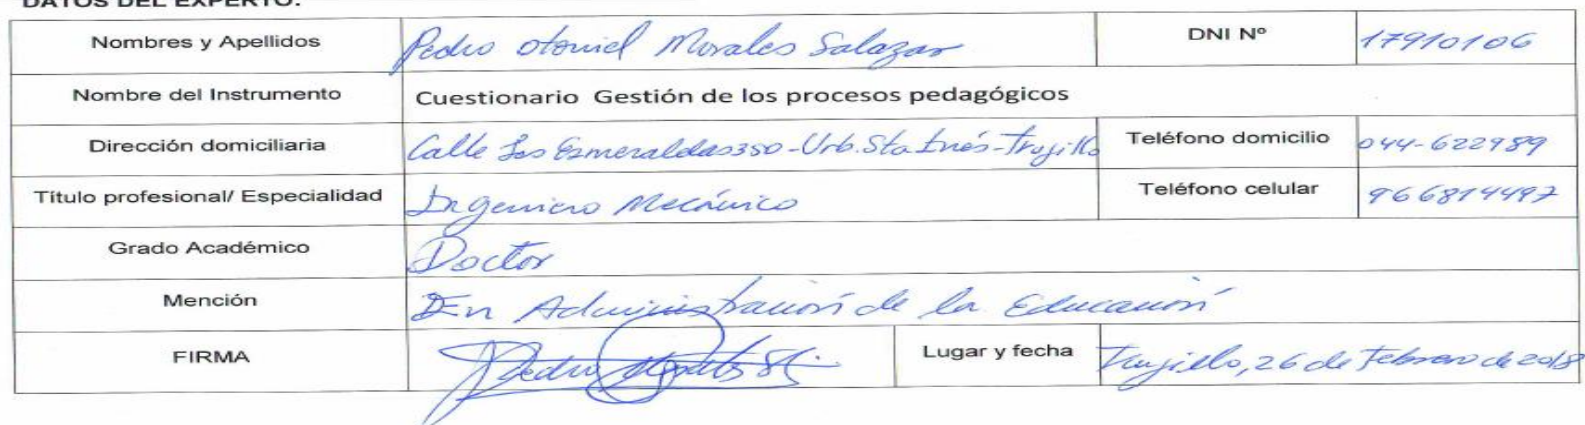 DATOS DEL EXPERTO:
Nombres y Apellidos Pedro Otoniel Morales Salazar DNI Nº 17910106
Nombre del Instrumento Cuestionario Gestión de los procesos pedagógicos
Dirección domiciliaria Calle Las Esmeraldas 350 - Urb. Sta Inés - Trujillo Teléfono domicilio 044-622989
Título profesional/ Especialidad Ingeniero Mecánico Teléfono celular 966814497
Grado Académico Doctor
Mención En Administración de la Educación
FIRMA Pedro Morales S. Lugar y fecha Trujillo, 26 de Febrero de 2018